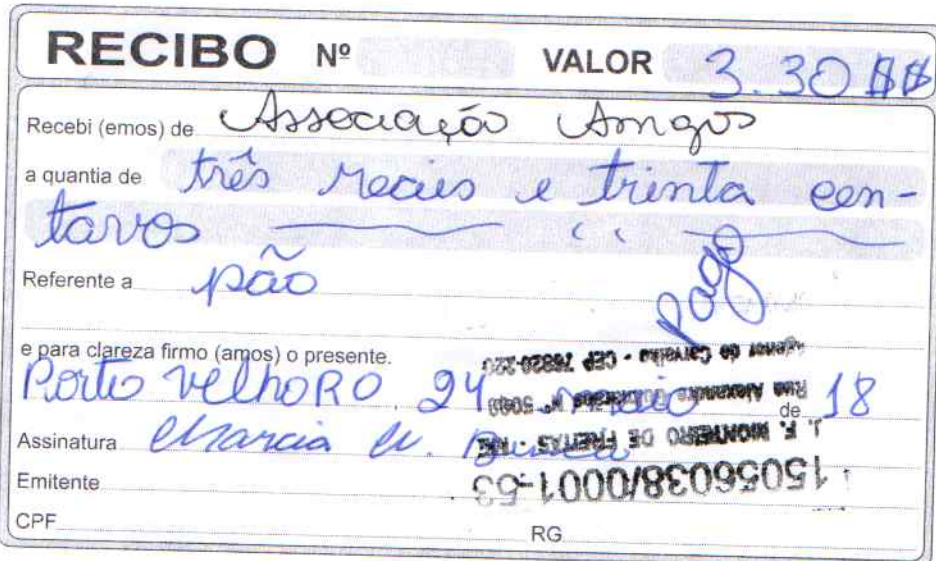 RECIBO Nº VALOR 3.30 $$
Recebi (emos) de Associação Amigos
a quantia de três reais e trinta cen-
tavos
Referente a pão
pago
e para clareza firmo (amos) o presente.
Porto Velho RO, 24 maio de 18
Assinatura Marcia M.
Emitente
CPF RG
15056038/0001-53
J. F. MONTHEIRO DE FREITAS - ME
Rua Alexandre Nº 5099
Agenor de Carvalho - CEP 76820-220